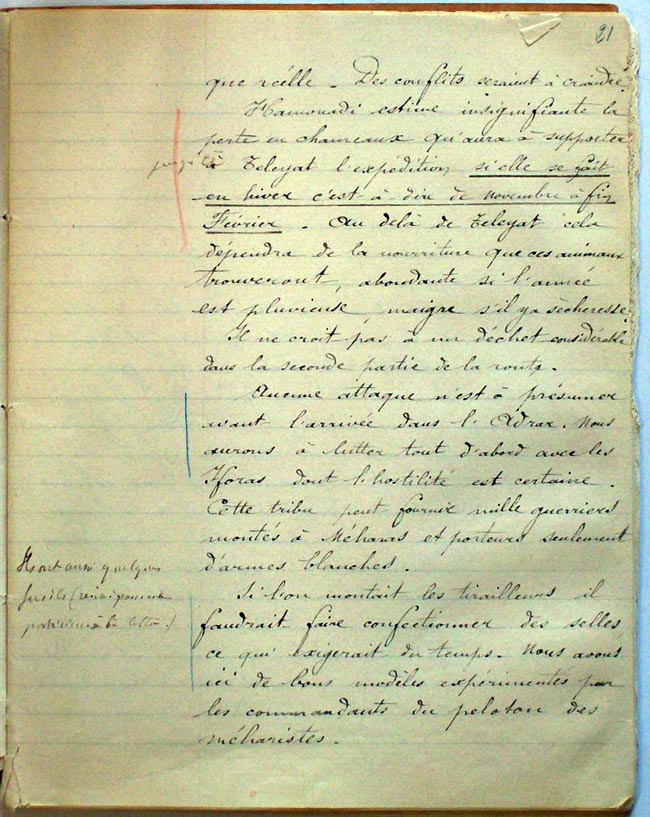 21
que réelle - Des conflits seraient à craindre.
Hamouadi estime insignifiante la
perte en chameaux qu'aura à supporter
jusqu'à
à Teleyat l'expédition si elle se fait
en hiver c'est à dire de novembre à fin
Février. Au delà de Teleyat cela
dépendra de la nourriture que ces animaux
trouveront, abondante si l'année
est pluvieuse, maigre s'il y a sècheresse.
Il ne croit pas à un déchet considérable
dans la seconde partie de la route.
Aucune attaque n'est à présumer
avant l'arrivée dans l'Adrar. Nous
aurons à lutter tout d'abord avec les
Iforas dont l'hostilité est certaine.
Cette tribu peut fournir mille guerriers
montés à Méharas et porteurs seulement
d'armes blanches.
Ils ont aussi quelques
fusils (
Si l'on montait les tirailleurs il
faudrait faire confectionner des selles
ce qui exigerait du temps. Nous avons
ici de bons modèles expérimentés par
les commandants du peloton des
méharistes.